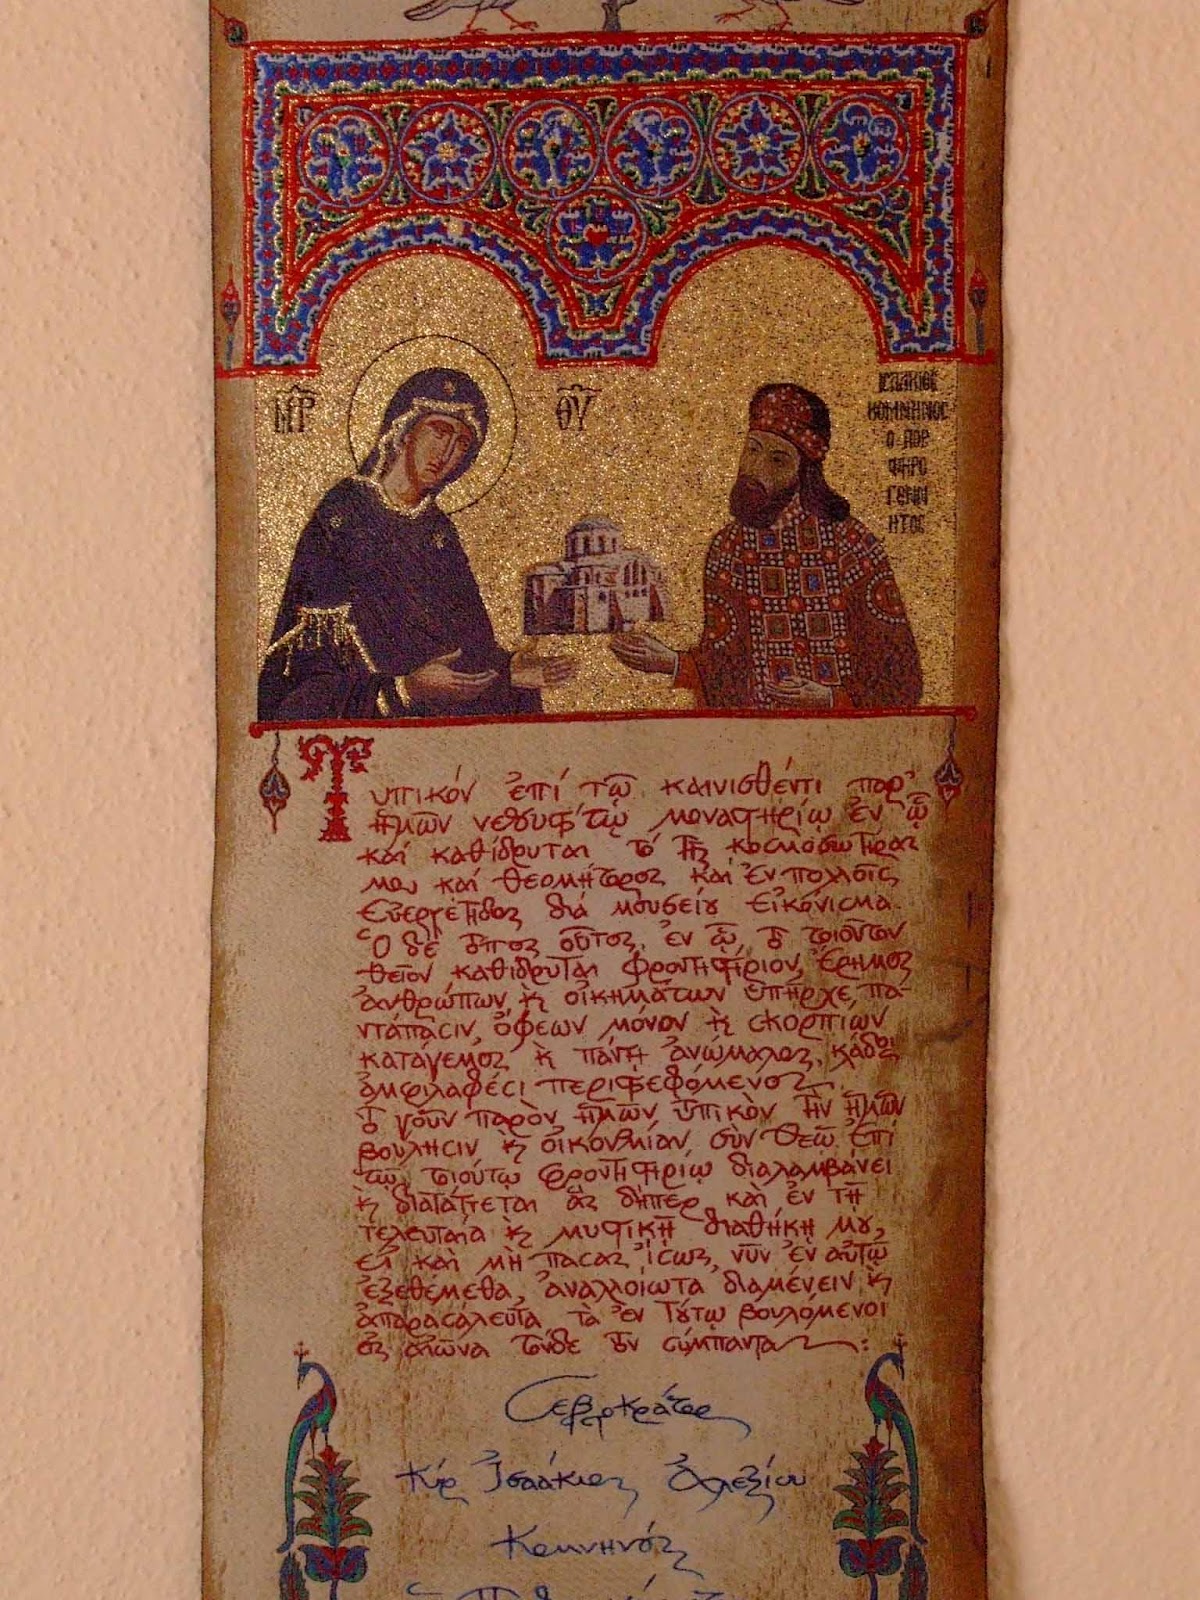 ΜΡ ΘΥ
ΙΣΑΑΚΙΟΣ
ΚΟΜΝΗΝΟΣ
Ο ΠΟΡ
ΦΗΡΟ
ΓΕΝΝ
ΗΤΟΣ
Τυπικόν ἐπί τῷ καινισθέντι παρ'
ἡμῶν νεοσυστάτῳ μοναστηρίῳ ἐν ᾧ
καί καθίδρυται τό τῆς κοσμοσωτήρας
μου καί θεομήτορος καί ἐν πολλοῖς
Εὐεργέτιδος διά μουσείου εἰκόνισμα.
Ὁ δέ τόπος οὗτος, ἐν ᾧ τό τοιοῦτον
θεῖον καθίδρυται φροντιστήριον, ἔρημος
ἀνθρώπων κ̀ οἰκημάτων ὑπῆρχε πα-
ντάπασιν, ὄφεων μόνον κ̀ σκορπίων
κατάγεμος κ̀ πάντῃ ἀνώμαλος, κλάδοι
ἀμφιλαφέσι περιστεφόμενος.
Τό γοῦν παρὸν ἡμῶν τυπικὸν τὴν ἡμῶν
βούλησιν κ̀ οἰκονομίαν σὺν Θεῷ ἐπί
τῷ τοιούτῳ φροντιστηρίῳ διαλαμβάνει
κ̀ διατάττεται ἃς δήπερ καὶ ἐν τῇ
τελευταίᾳ κ̀ μυστικῇ διαθήκῃ μου,
εἰ καὶ μὴ πάσας ἴσως, νῦν ἐν αὐτῷ
ἐξεθέμεθα, ἀναλλοίωτα διαμένειν κ̀
ἀπαρασάλευτα τὰ ἐν τούτῳ βουλόμενοι
εἰς αἰῶνα τόνδε τὸν σύμπαντα :
Σεβαστοκράτορ
Κύρ Ἰσαάκιος Ἀλεξίου
Κομνηνός